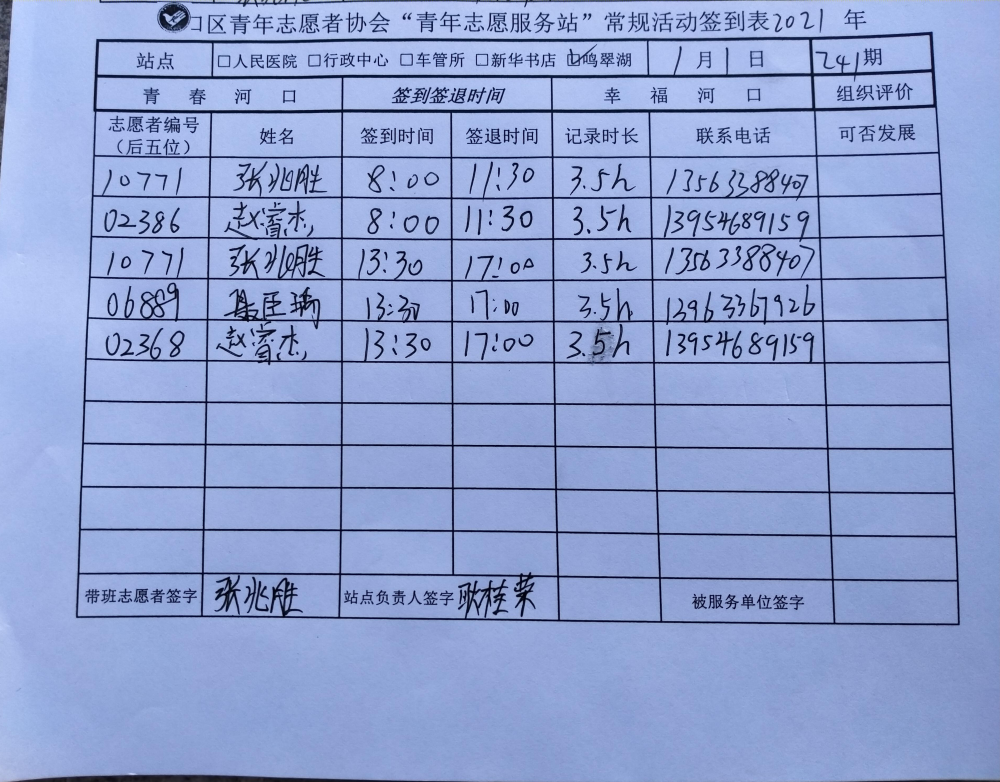 口区青年志愿者协会“青年志愿服务站”常规活动签到表2021 年
站点 □人民医院 □行政中心 □车管所 □新华书店 ☑鸣翠湖 1月1日 241期
青春河口 签到签退时间 幸福河口 组织评价
志愿者编号（后五位） 姓名 签到时间 签退时间 记录时长 联系电话 可否发展
10771 张兆胜 8:00 11:30 3.5h 13563388407
02386 赵睿杰 8:00 11:30 3.5h 13954689159
10771 张兆胜 13:30 17:00 3.5h 13563388407
06889 聂臣瑀 13:30 17:00 3.5h 13963367926
02368 赵睿杰 13:30 17:00 3.5h 13954689159
带班志愿者签字 张兆胜 站点负责人签字 耿桂荣 被服务单位签字